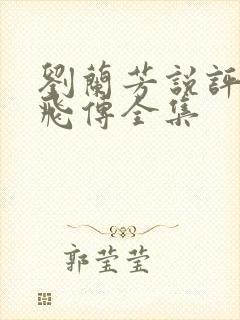 劉蘭芳說評
飛傳全集
郭莹莹